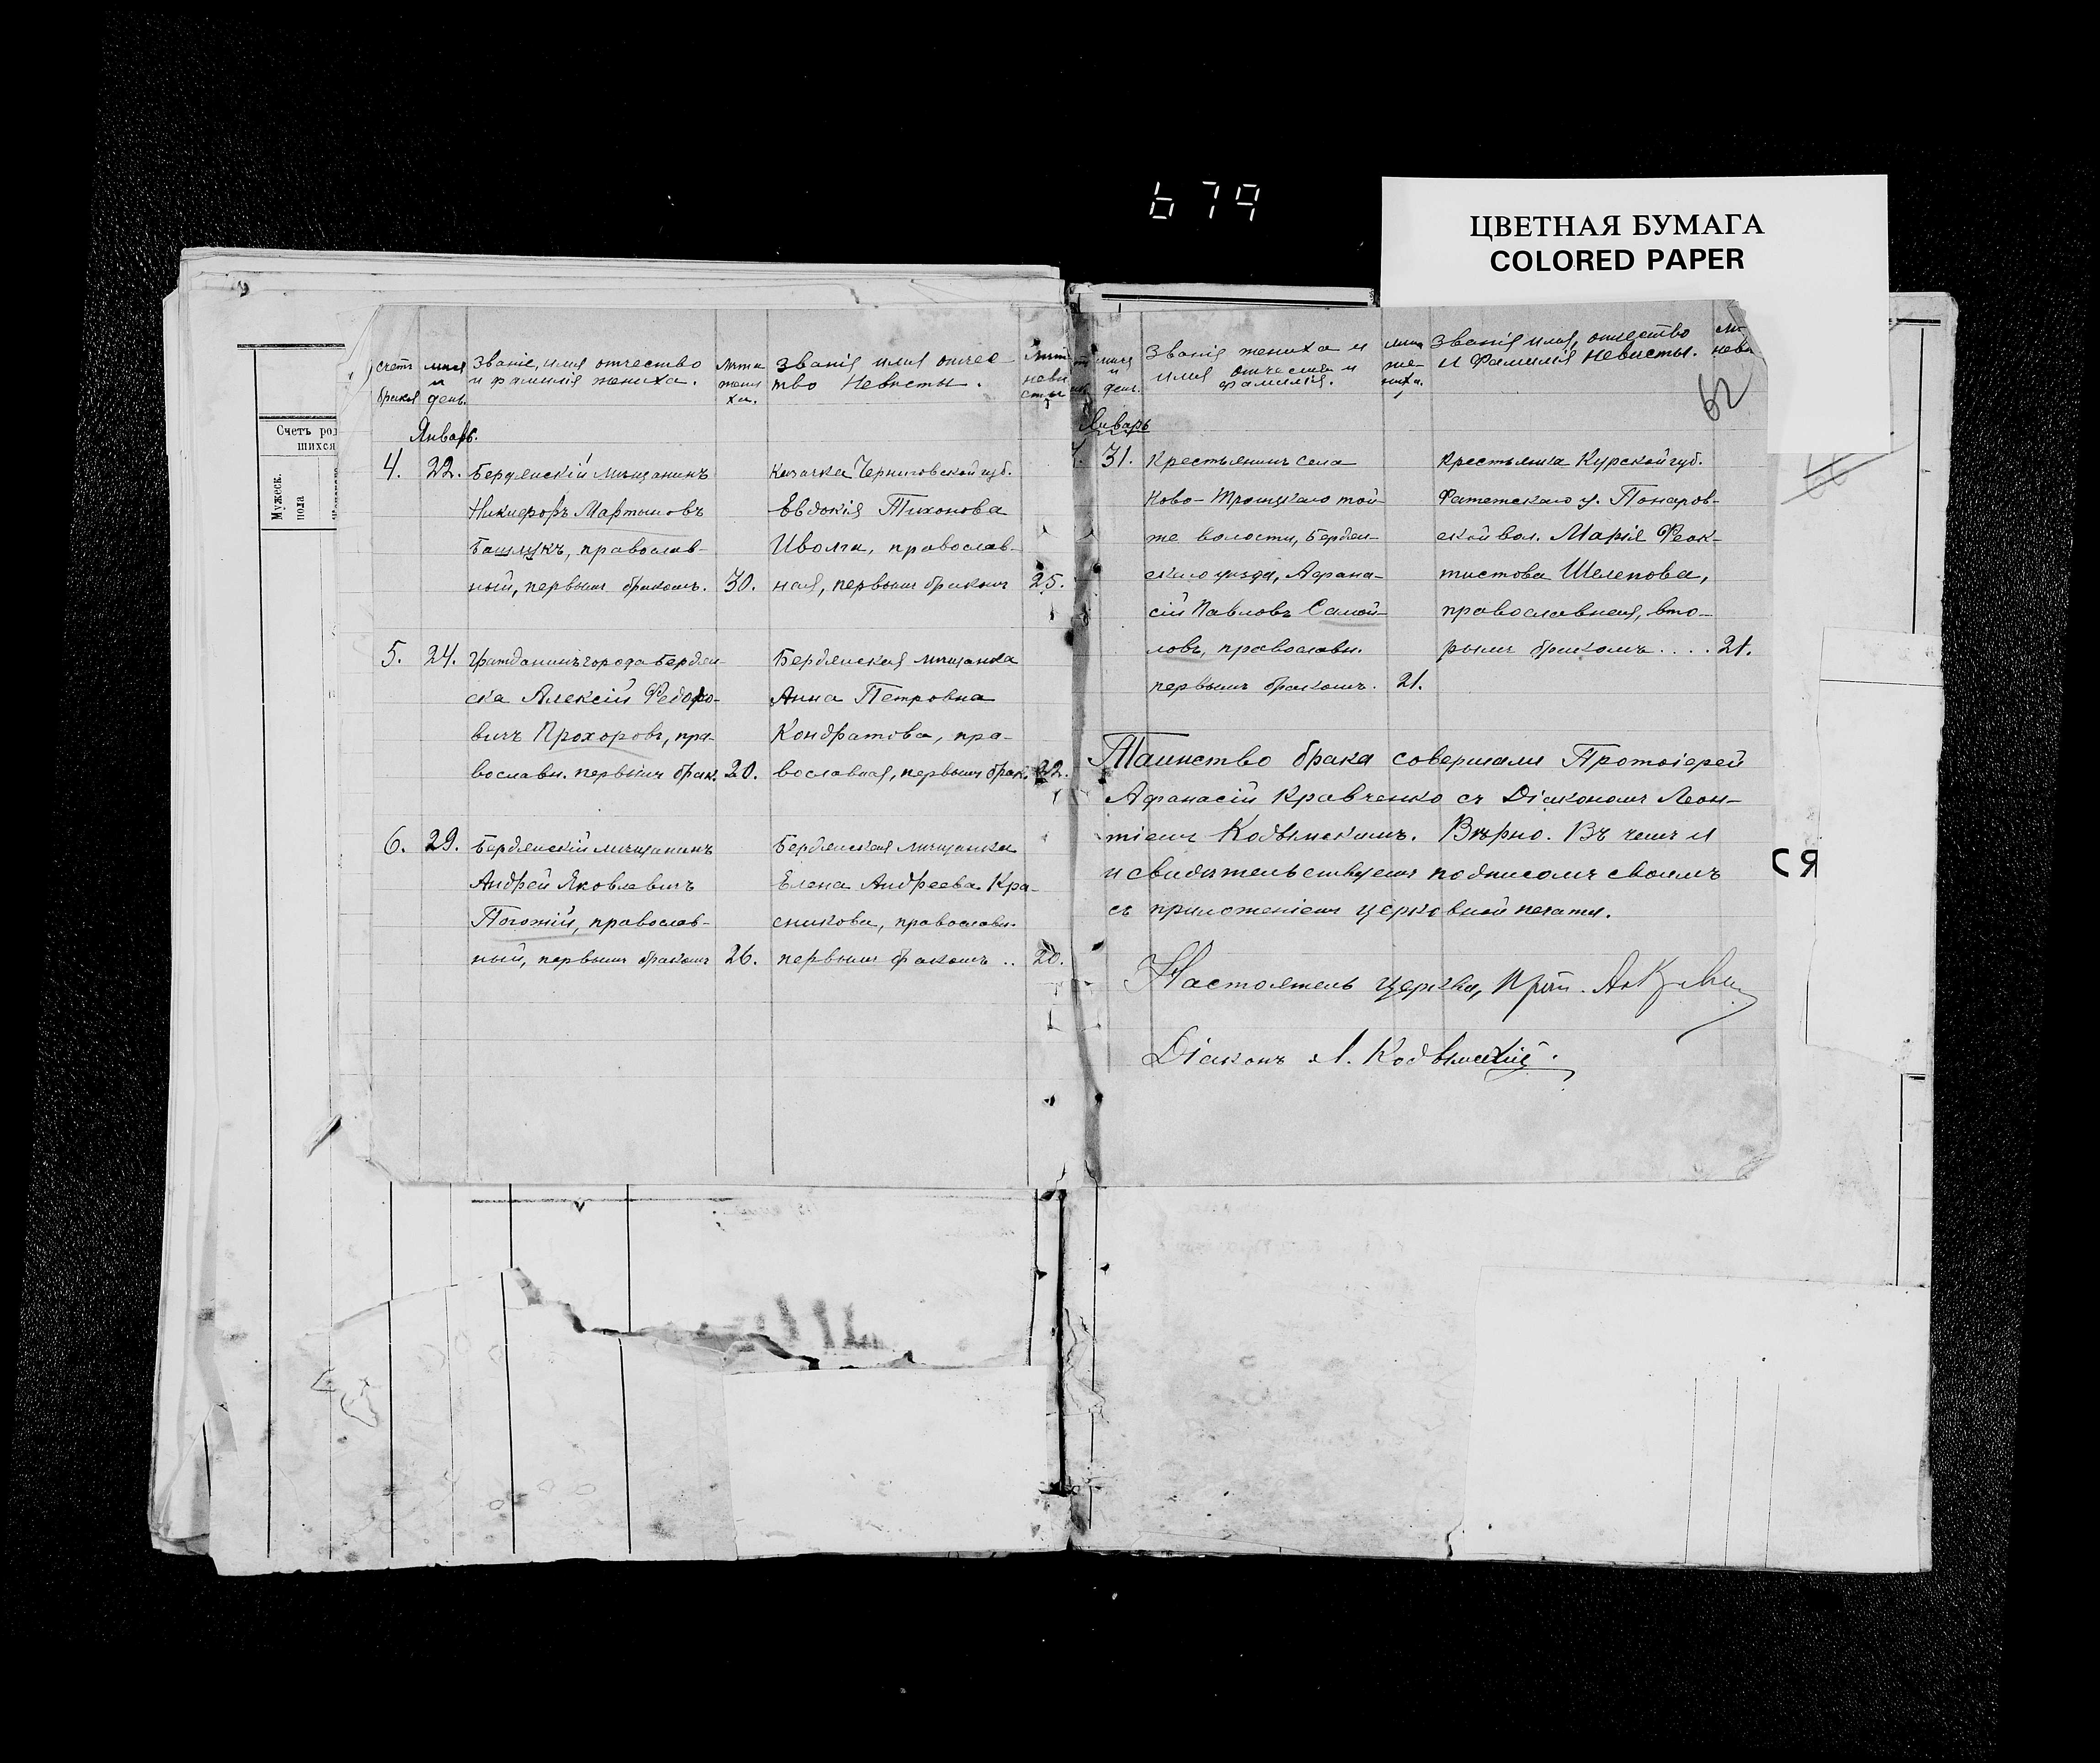 679
ЦВЕТНАЯ БУМАГА
COLORED PAPER
Счетъ род
шихся
Мужеск.
пола
счетъ брака
мѣся и день.
Званіе, имя отчество
и фамилія жениха.
лѣта жени ха.
Званія имя отчес-
тво Невѣсты.
лѣт невѣ сты
Январь.
4. 22. Бердянскій мѣщанинъ
Никифоръ Мартыновъ
Башлукъ, православ-
ный, первымъ бракомъ. 30.
Казачка Черниговской губ.
Евдокія Тихонова
Иволга, православ-
ная, первымъ бракомъ 25.
5. 24. Гражданинъ города Бердян-
ска Алексій Федоро-
вичъ Прохоровъ, пра-
вославн. первымъ брак. 20.
Бердянская мѣщанка
Анна Петровна
Кондратова, пра-
вославная, первымъ брак. 22.
6. 29. Бердянскій мѣщанинъ
Андрей Яковлевичъ
Погожій, православ-
ный, первымъ бракомъ 26.
Бердянская мѣщанка
Елена Андреева Кра-
сникова, православн.
первымъ бракомъ .. 20.
мѣся и день.
Званія жениха и
имя отчества и
фамилія.
лѣта же- ниха.
Званія имя, отчество
и Фамилія Невѣсты.
лѣ- невѣ
62
Январь
7. 31. Крестьянинъ села
Ново-Троицкаго той-
же волости, Бердян-
скаго уѣзда, Афана-
сій Павловъ Самой-
ловъ, православн.
первымъ бракомъ. 21.
Крестьянка Курской губ.
Фатежскаго у. Понаров-
ской вол. Марія Феок-
тистова Шелепова,
православная, вто-
рымъ бракомъ .... 21.
Таинство брака совершали Протоіерей
Афанасій Кравченко съ Діакономъ Леон-
тіемъ Кодвынскимъ. Вѣрно. Въ чемъ и
и свидѣтельствуемъ подписомъ своимъ
съ приложеніемъ церковной печати.
Настоятель церкви, Прот.
Діаконъ Л. Кодвынскій.
СЯ